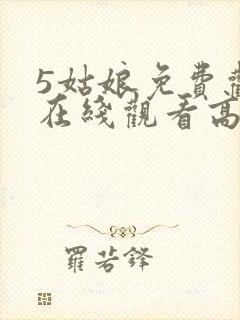 5姑娘免费觀
在綫觀看高
羅若鋒